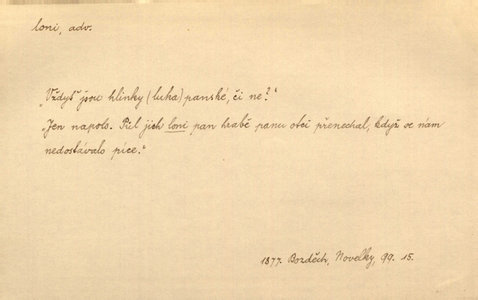 loni, adv.
„Vždyť jsou hlinky (luka) panské, či ne?“
„Jen napolo. Půl jich loni pan hrabě panu otci přenechal, když se nám
nedostávalo píce.“
1877. Bozděch, Novelky, 99. 15.